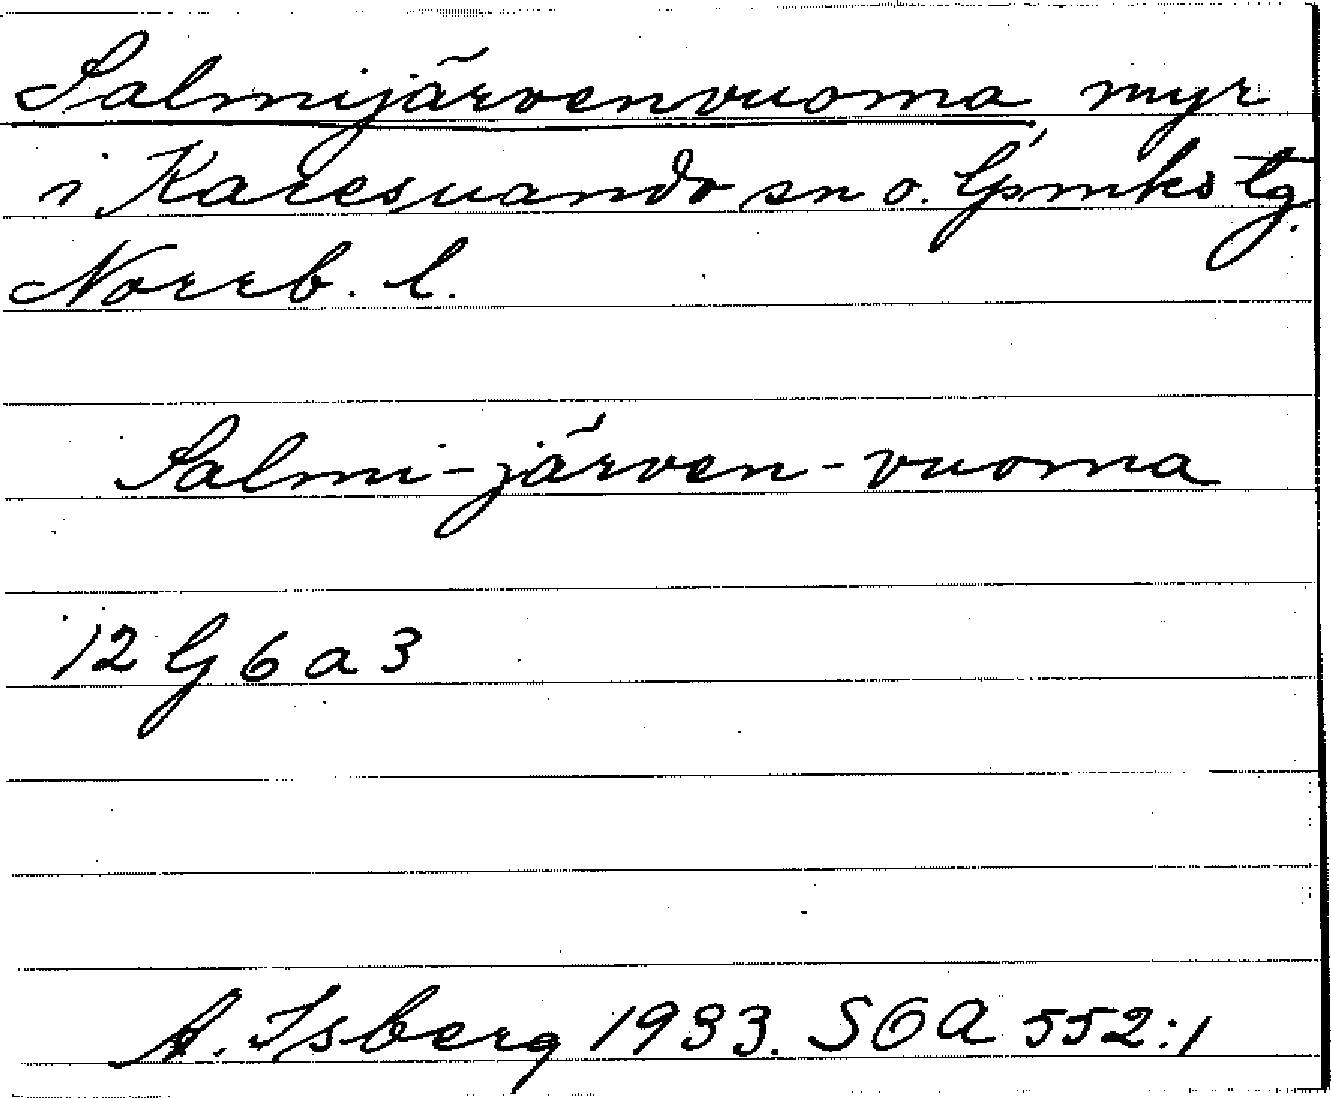 Salmijärvenvuoma myr
i Karesuando sn o. lpmks tg.
Norrb. l.
Salmi-järven-vuoma
12 G 6 a 3
A. Isberg 1933. SOA 552:1